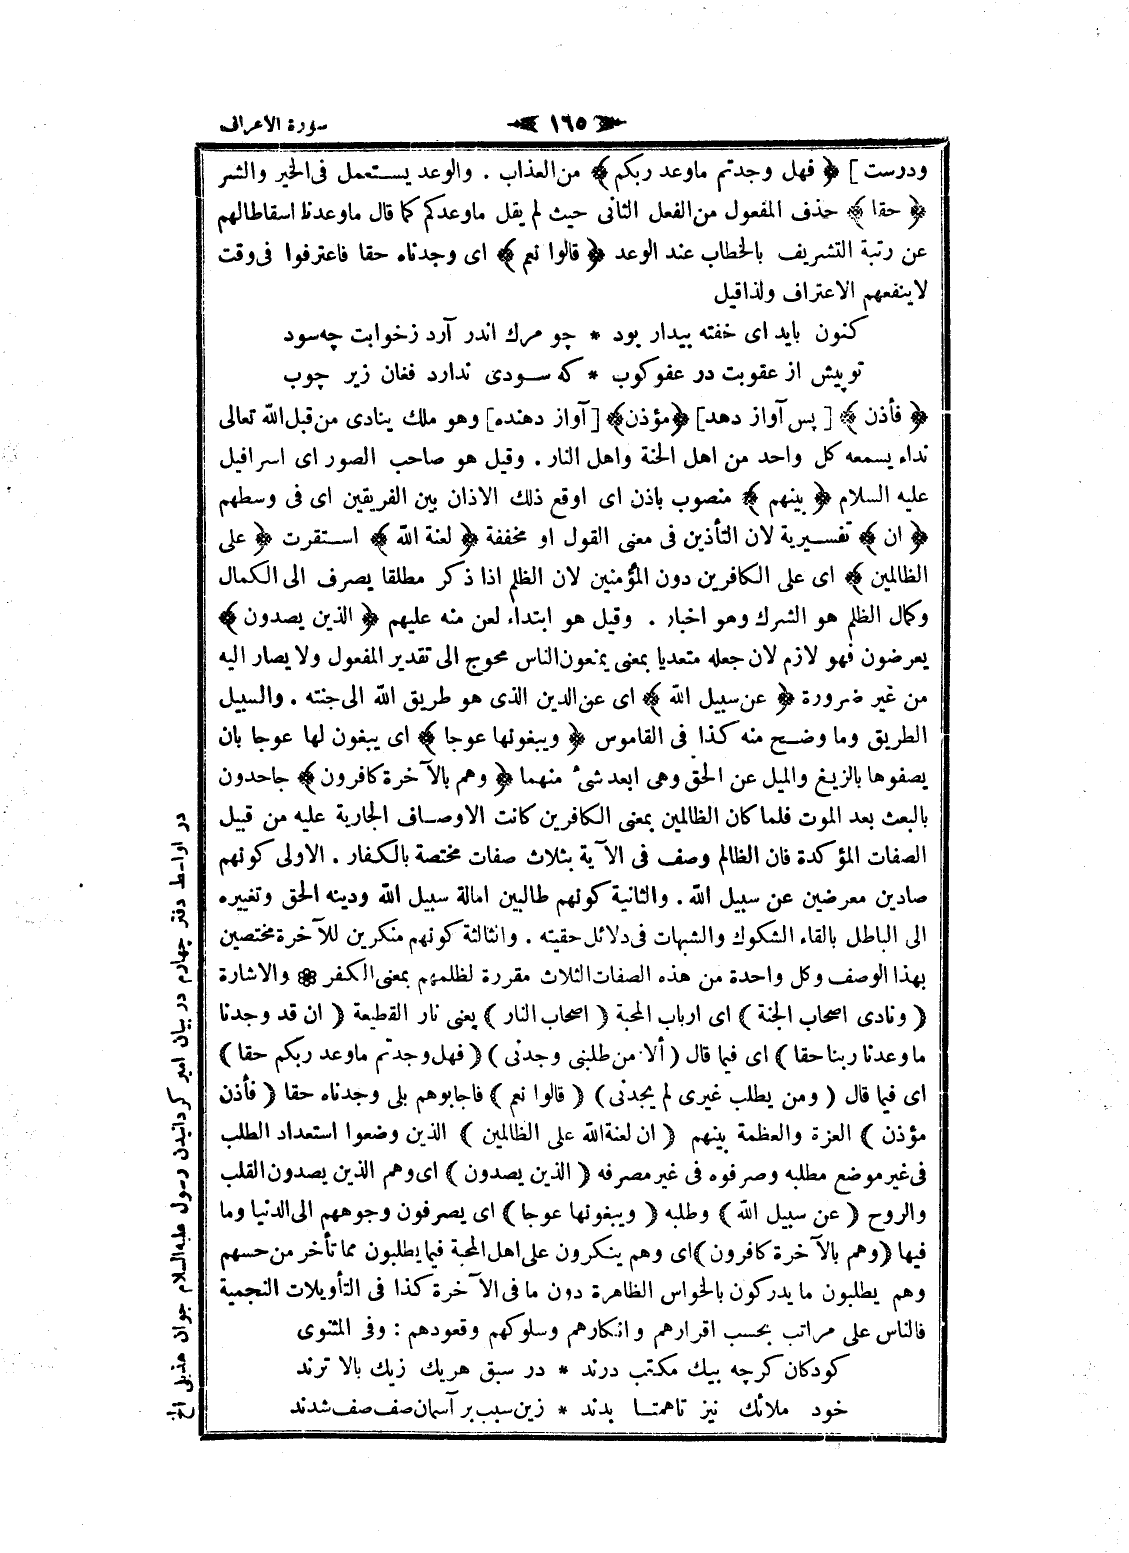 سورة الاعراف
١٦٥
ودرست] ﴿ فهل وجدتم ماوعد ربكم ﴾ من العذاب . والوعد يستعمل فى الخير والشر
﴿ حقا ﴾ حذف المفعول من الفعل الثانى حيث لم يقل ماوعدكم كما قال ماوعدنا اسقاطالهم
عن رتبة التشريف بالخطاب عند الوعد ﴿ قالوا نعم ﴾ اى وجدناه حقا فاعترفوا فى وقت
لاينفعهم الاعتراف ولذاقيل
كنون بايد اى خفته بيدار بود * چو مرك اندر آرد زخوابت چه‌سود
توپيش از عقوبت در عفوكوب * كه سودى ندارد فغان زير چوب
﴿ فأذن ﴾ [پس آواز دهد] ﴿مؤذن﴾ [آواز دهنده] وهو ملك ينادى من قبل الله تعالى
نداء يسمعه كل واحد من اهل الجنة واهل النار . وقيل هو صاحب الصور اى اسرافيل
عليه السلام ﴿ بينهم ﴾ منصوب باذن اى اوقع ذلك الاذان بين الفريقين اى فى وسطهم
﴿ ان ﴾ تفسيرية لان التأذين فى معنى القول او مخففة ﴿ لعنة الله ﴾ استقرت ﴿ على
الظالمين ﴾ اى على الكافرين دون المؤمنين لان الظلم اذا ذكر مطلقا يصرف الى الكمال
وكمال الظلم هو الشرك وهو اخبار . وقيل هو ابتداء لعن منه عليهم ﴿ الذين يصدون ﴾
يعرضون فهو لازم لان جعله متعديا بمعنى يمنعون الناس محوج الى تقدير المفعول ولا يصار اليه
من غير ضرورة ﴿ عن سبيل الله ﴾ اى عن الدين الذى هو طريق الله الى جنته . والسبيل
الطريق وما وضح منه كذا فى القاموس ﴿ ويبغونها عوجا ﴾ اى يبغون لها عوجا بان
يصفوها بالزيغ والميل عن الحق وهى ابعد شئ منهما ﴿ وهم بالآخرة كافرون ﴾ جاحدون
بالبعث بعد الموت فلما كان الظالمين بمعنى الكافرين كانت الاوصاف الجارية عليه من قبيل
الصفات المؤكدة فان الظالم وصف فى الآية بثلاث صفات مختصة بالكفار . الاولى كونهم
صادين معرضين عن سبيل الله . والثانية كونهم طالبين امالة سبيل الله ودينه الحق وتغييره
الى الباطل بالقاء الشكوك والشبهات فى دلائل حقيته . والثالثة كونهم منكرين للآخرة مختصين
بهذا الوصف وكل واحدة من هذه الصفات الثلاث مقررة لظلمهم بمعنى الكفر ❁ والاشارة
( ونادى اصحاب الجنة ) اى ارباب المحبة ( اصحاب النار ) يعنى نار القطيعة ( ان قد وجدنا
ماوعدنا ربنا حقا ) اى فيما قال ( ألا من طلبنى وجدنى ) ( فهل وجدتم ماوعد ربكم حقا )
اى فيما قال ( ومن يطلب غيرى لم يجدنى ) ( قالوا نعم ) فاجابوهم بلى وجدناه حقا ( فأذن
مؤذن ) العزة والعظمة بينهم ( ان لعنة الله على الظالمين ) الذين وضعوا استعداد الطلب
فى غير موضع مطلبه وصرفوه فى غير مصرفه ( الذين يصدون ) اى وهم الذين يصدون القلب
والروح ( عن سبيل الله ) وطلبه ( ويبغونها عوجا ) اى يصرفون وجوههم الى الدنيا وما
فيها (وهم بالآخرة كافرون) اى وهم ينكرون على اهل المحبة فيما يطلبون مما تأخر من حسهم
وهم يطلبون ما يدركون بالحواس الظاهرة دون ما فى الآخرة كذا فى التأويلات النجمية
فالناس على مراتب بحسب اقرارهم وانكارهم وسلوكهم وقعودهم : وفى المثنوى
كودكان كرچه بيك مكتب درند * در سبق هريك زيك بالا ترند
خود ملائك نيز ناهمتا بدند * زين سبب بر آسمان صف صف شدند
در اواسط دفتر چهارم در بيان امير كردانيدن رسول عليه السلام جوان هذيلى الخ